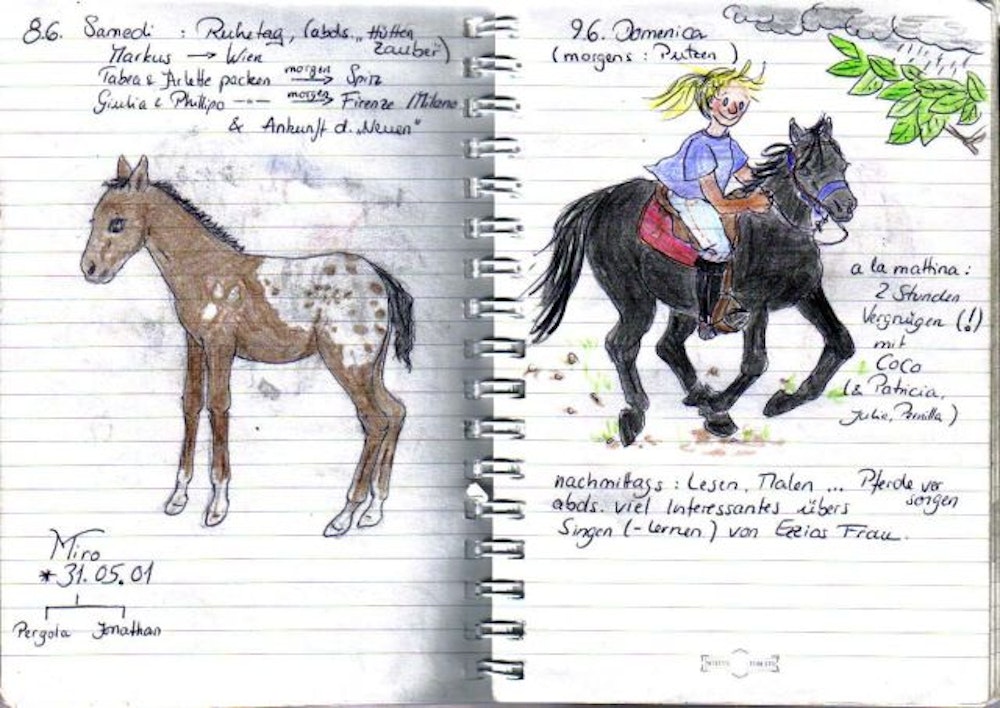 8.6. Samedi : Ruhetag, (abds. „Hütten
zauber")
Markus → Wien
Tabea & Arlette packen morgen → Spiez
Giulia & Phillipo --- morgen → Firenze / Milano
& Ankunft d. „Neuen"
Miro
* 31.05.01
Pergola Jonathan
9.6. Domenica
(morgens : Putzen)
a la mattina :
2 Stunden
Vergnügen (!)
mit
Coco
(& Patricia,
Julie, Pernilla)
nachmittags : Lesen, Malen ... Pferde ver
sorgen
abds. viel Interessantes übers
Singen (-lernen) von Ezzios Frau.